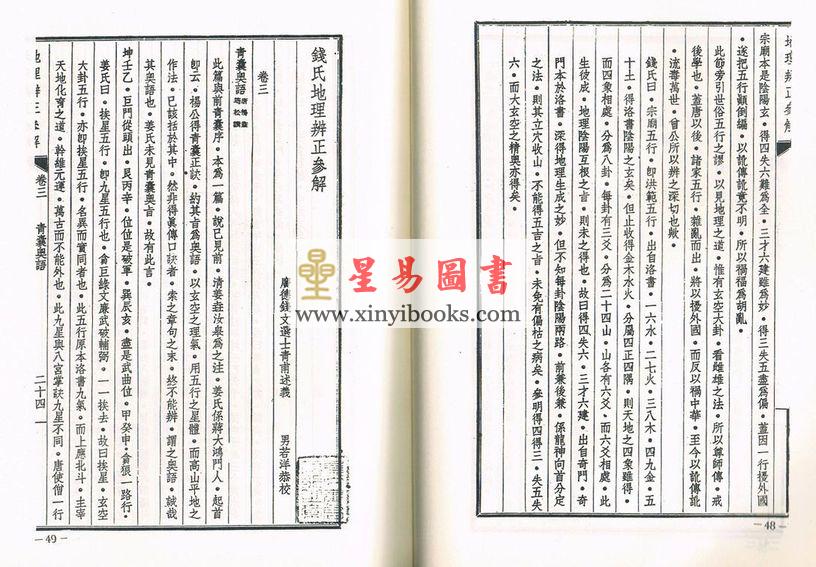 地理辨正參解
宗廟本是陰陽玄。得四失六難爲全。三才六建雖爲妙。得三失五盡爲偏。蓋因一行擾外國
。遂把五行顚倒編。以訛傳訛竟不明。所以禍福爲胡亂。
此節旁引世俗五行之謬。以見地理之道。惟有玄空大卦。看雌雄之法。所以尊師傳。戒
後學也。蓋唐以後。諸家五行。雜亂而出。將以擾外國。而反以禍中華。至今以訛傳訛
。流毒萬世。曾公所以辨之深切也歟。
錢氏曰。宗廟五行。卽洪範五行。出自洛書。一六水。二七火。三八木。四九金。五
十土。得洛書陰陽之玄矣。但止收得金木水火。分屬四正四隅。則天地之四象雖得。
而四象相處。分爲八卦。每卦有三爻。分爲二十四山。山各有六爻。而六爻相處。此
生彼成。地理陰陽互根之旨。則未之得也。故曰得四失六。三才六建。出自奇門。奇
門本於洛書。深得地理生成之妙。但不知每卦陰陽兩路。前兼後兼。係龍神向首分定
之法。則其立穴收山。不能得五吉之旨。未免有偏枯之病矣。參明得四得三。失五失
六。而大玄空之精奧亦得矣。
－48－
錢氏地理辨正參解
廣德錢文選士青甫述義
男若洋恭校
卷三
青囊奧語
此篇與前青囊序。本爲一篇。說已見前。清姜垚汝皋爲之注。姜氏係蔣大鴻門人。起首
卽云。楊公得青囊正訣。約其旨爲奧語。以玄空之理氣。用五行之星體。而高山平地之
作法。已該括於其中。然非得眞傳口訣者。索之章句之末。終不能辨。謂之奧語。誠哉
其奧語也。姜氏未見青囊奧旨。故有此言。
坤壬乙。巨門從頭出。艮丙辛。位位是破軍。巽辰亥。盡是武曲位。甲癸申。貪狼一路行。
姜氏曰。挨星五行。卽九星五行也。貪巨祿文廉武破輔弼。一一挨去。故曰挨星。玄空
大卦五行。亦卽挨星五行。名異而實同者也。此五行原本洛書九氣。而上應北斗。主宰
天地化育之道。幹維元運。萬古而不能外也。此九星與八宮掌訣九星不同。唐使僧一行
地理辨正參解
卷三
青囊奧語
二十四
－49－
星易圖書
www.xinyibooks.com